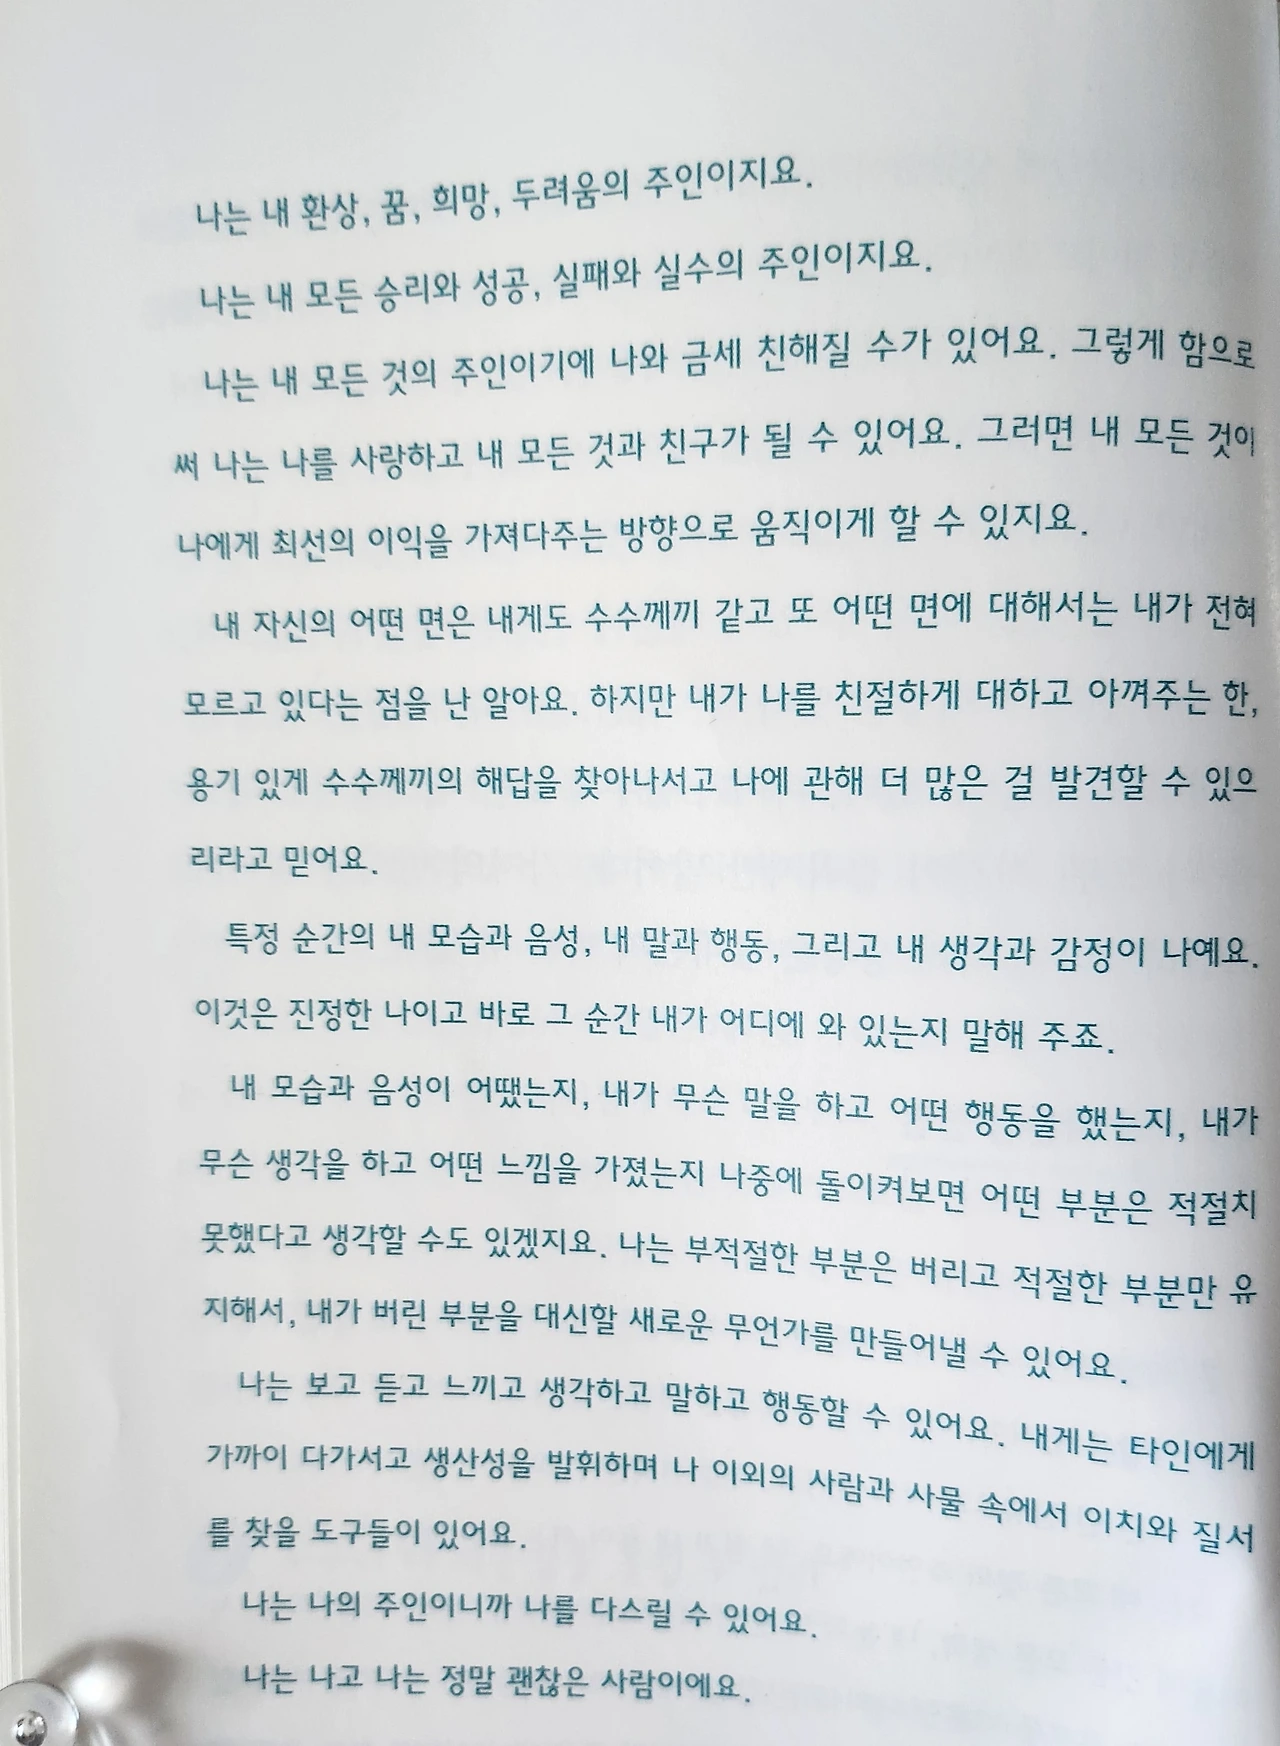 나는 내 환상, 꿈, 희망, 두려움의 주인이지요.
나는 내 모든 승리와 성공, 실패와 실수의 주인이지요.
나는 내 모든 것의 주인이기에 나와 금세 친해질 수가 있어요. 그렇게 함으로
써 나는 나를 사랑하고 내 모든 것과 친구가 될 수 있어요. 그러면 내 모든 것이
나에게 최선의 이익을 가져다주는 방향으로 움직이게 할 수 있지요.
내 자신의 어떤 면은 내게도 수수께끼 같고 또 어떤 면에 대해서는 내가 전혀
모르고 있다는 점을 난 알아요. 하지만 내가 나를 친절하게 대하고 아껴주는 한,
용기 있게 수수께끼의 해답을 찾아나서고 나에 관해 더 많은 걸 발견할 수 있으
리라고 믿어요.
특정 순간의 내 모습과 음성, 내 말과 행동, 그리고 내 생각과 감정이 나예요.
이것은 진정한 나이고 바로 그 순간 내가 어디에 와 있는지 말해 주죠.
내 모습과 음성이 어땠는지, 내가 무슨 말을 하고 어떤 행동을 했는지, 내가
무슨 생각을 하고 어떤 느낌을 가졌는지 나중에 돌이켜보면 어떤 부분은 적절치
못했다고 생각할 수도 있겠지요. 나는 부적절한 부분은 버리고 적절한 부분만 유
지해서, 내가 버린 부분을 대신할 새로운 무언가를 만들어낼 수 있어요.
나는 보고 듣고 느끼고 생각하고 말하고 행동할 수 있어요. 내게는 타인에게
가까이 다가서고 생산성을 발휘하며 나 이외의 사람과 사물 속에서 이치와 질서
를 찾을 도구들이 있어요.
나는 나의 주인이니까 나를 다스릴 수 있어요.
나는 나고 나는 정말 괜찮은 사람이에요.